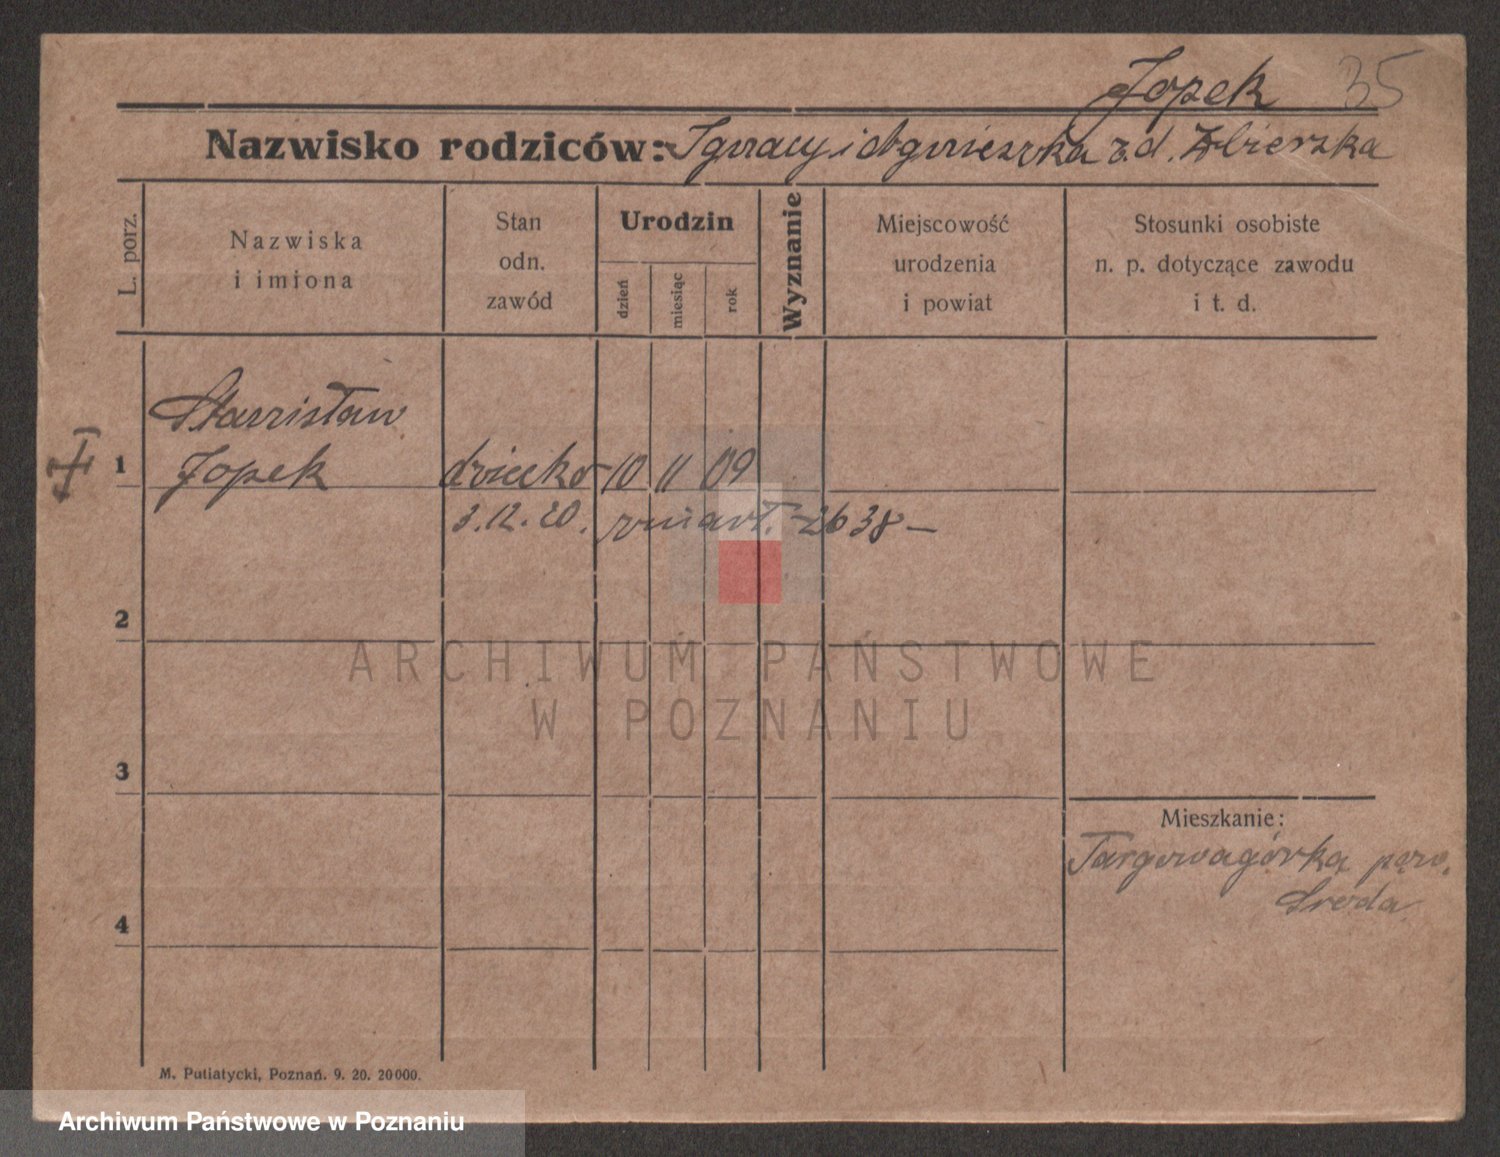 Jopek 35
Nazwisko rodziców: Ignacy i Agnieszka z d. Zbierska
L. porz.
Nazwiska
i imiona
Stan
odn.
zawód
Urodzin
dzień
miesiąc
rok
Wyznanie
Miejscowość
urodzenia
i powiat
Stosunki osobiste
n. p. dotyczące zawodu
i t. d.
Stanisław
1 Jopek dziecko 10 11 09
3.12.20. zmarł. - 2638 -
2
ARCHIWUM PAŃSTWOWE
W POZNANIU
3
Mieszkanie:
Targowagórka pow.
Środa
4
M. Putiatycki, Poznań. 9. 20. 20000.
Archiwum Państwowe w Poznaniu